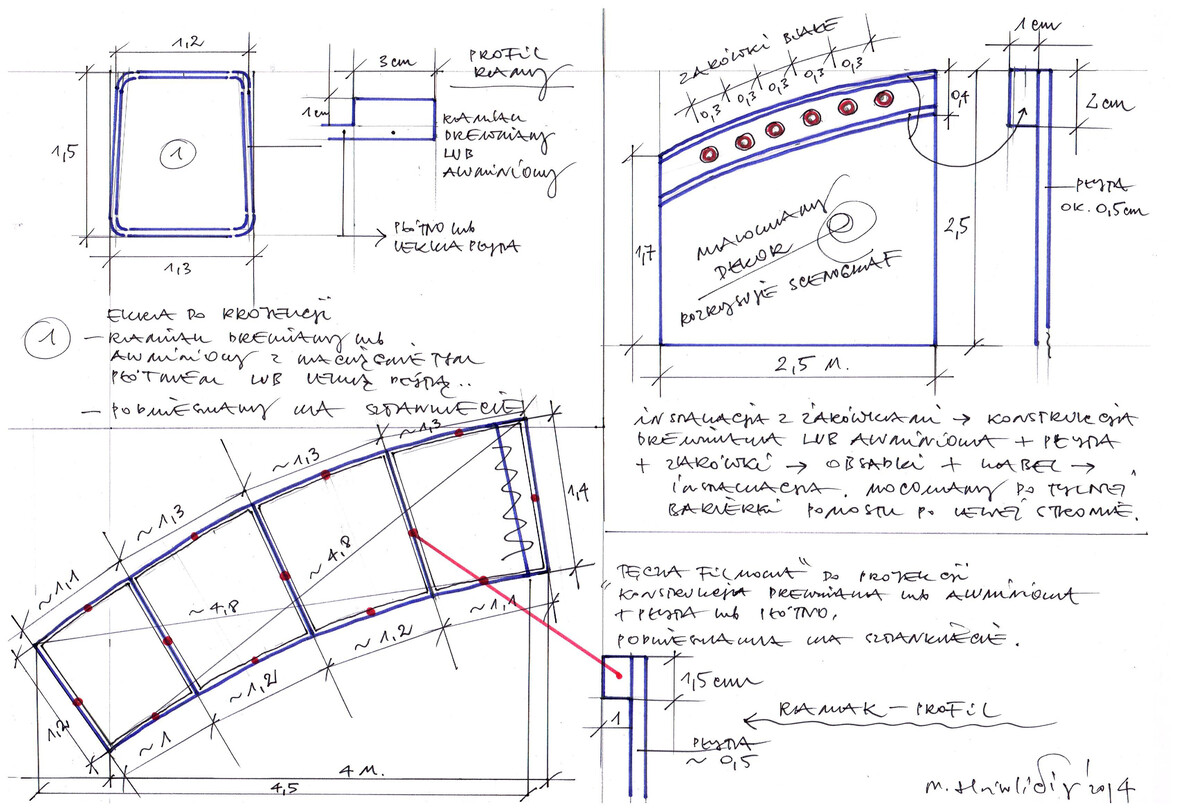 1,2
1,5
1
1,3
3 cm
1 cm
PROFIL
RAMY
RAMIAK
DREWNIANY
LUB
ALUMINIOWY
PŁÓTNO lub
LEKKA PŁYTA
1
EKRAN DO PROJEKCJI
– RAMIAK DREWNIANY lub
ALUMINIOWY Z
PŁÓTNEM LUB LEKKĄ PŁYTĄ..
– PODWIESZANY NA SZTANKIECIE
ŻARÓWKI BIAŁE
0,3 0,3 0,3 0,3 0,3
0,4
1,7
2,5
2,5 M.
MALOWANY
DEKOR
ROZRYSUJE SCENOGRAF
1 cm
2 cm
PŁYTA
OK. 0,5 cm
INSTALACJA Z ŻARÓWKAMI → KONSTRUKCJA
DREWNIANA LUB ALUMINIOWA + PŁYTA
+ ŻARÓWKI → OBSADKI + KABEL →
INSTALACJA. MOCOWANY DO TYLNEJ
BARIERKI POMOSTU PO LEWEJ STRONIE.
~1,1
~1,3
~1,3
~1,3
1,4
~4,8
~4,8
1,2
~1
~1,2
~1,2
~1,1
4 M.
4,5
"TĘCZA FILMOWA" DO PROJEKCJI
KONSTRUKCJA DREWNIANA lub ALUMINIOWA
+ PŁYTA lub PŁÓTNO.
PODWIESZANA NA SZTANKIECIE.
1,5 cm
1
PŁYTA
~ 0,5
RAMAK – PROFIL
M. 2014